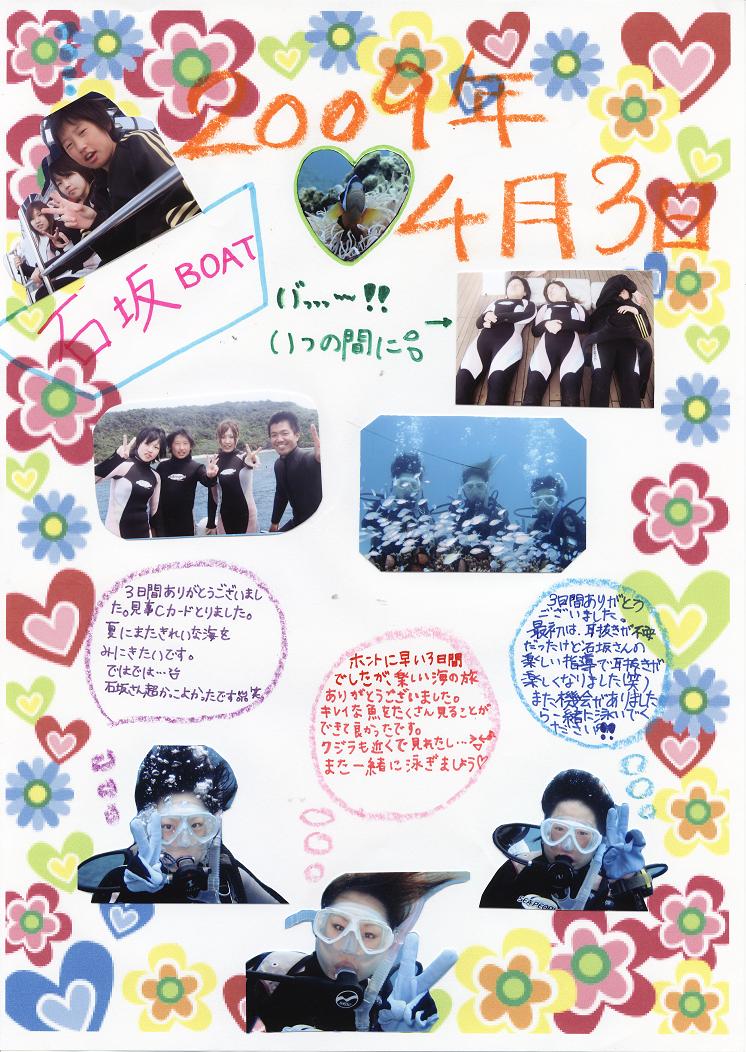 2009年
4月3日
石坂 BOAT
げっっっ〜!!
いつの間に→
3日間ありがとうございまし
た。見事Cカードとりました。
夏にまたきれいな海を
みにきたいです。
ではでは…
石坂さん超かっこよかったです 笑
ホントに早い3日間
でしたが、楽しい海の旅
ありがとうございました。
キレイな魚をたくさん見ることが
できて良かったです。
クジラも近くで見れたし…
また一緒に泳ぎましょう♡
3日間ありがとう
ございました。
最初は、耳抜きが不安
だったけど石坂さんの
楽しい指導で耳抜きが
楽しくなりました(笑)
また機会がありました
ら一緒に泳いでく
ださい!!